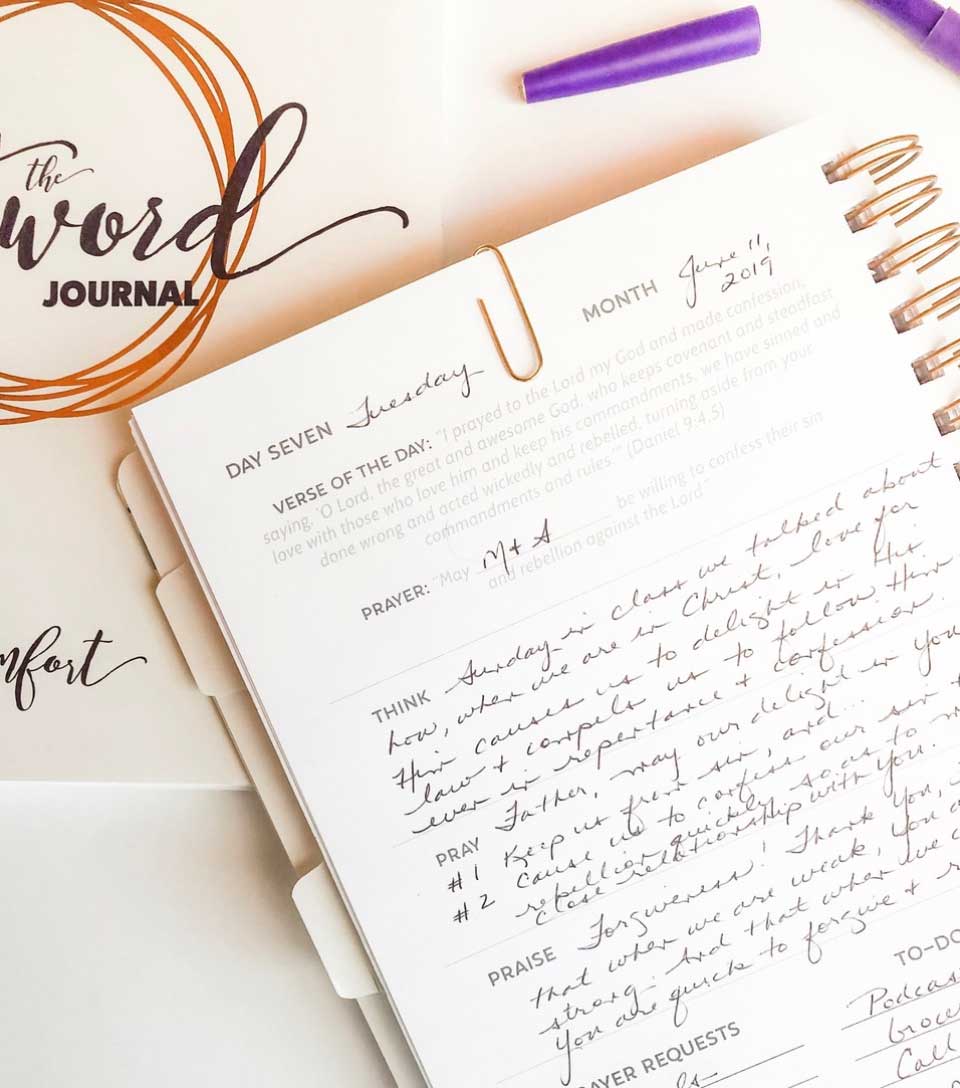 the
word
JOURNAL
MONTH June 11,
2019
DAY SEVEN Tuesday
VERSE OF THE DAY: "I prayed to the Lord my God and made confession,
saying, 'O Lord, the great and awesome God, who keeps covenant and steadfast
love with those who love him and keep his commandments, we have sinned and
done wrong and acted wickedly and rebelled, turning aside from your
commandments and rules.'" (Daniel 9:4,5)
PRAYER: "May M + A be willing to confess their sin
and rebellion against the Lord"
THINK Sunday in class we talked about
how, when we are in Christ, love for
Him causes us to delight in His
law + compels us to follow Him
ever in repentance + confession.
PRAY Father, may our delight in You
#1 Keep us from sin, and...
#2 cause us to confess our sin +
rebellion quickly so as to
close relationship with You.
PRAISE Forgiveness! Thank You,
that when we are weak, You
strong. And that when we
You are quick to forgive +
TO-DO
Podcas
Groce
Call
AYER REQUESTS
mfort